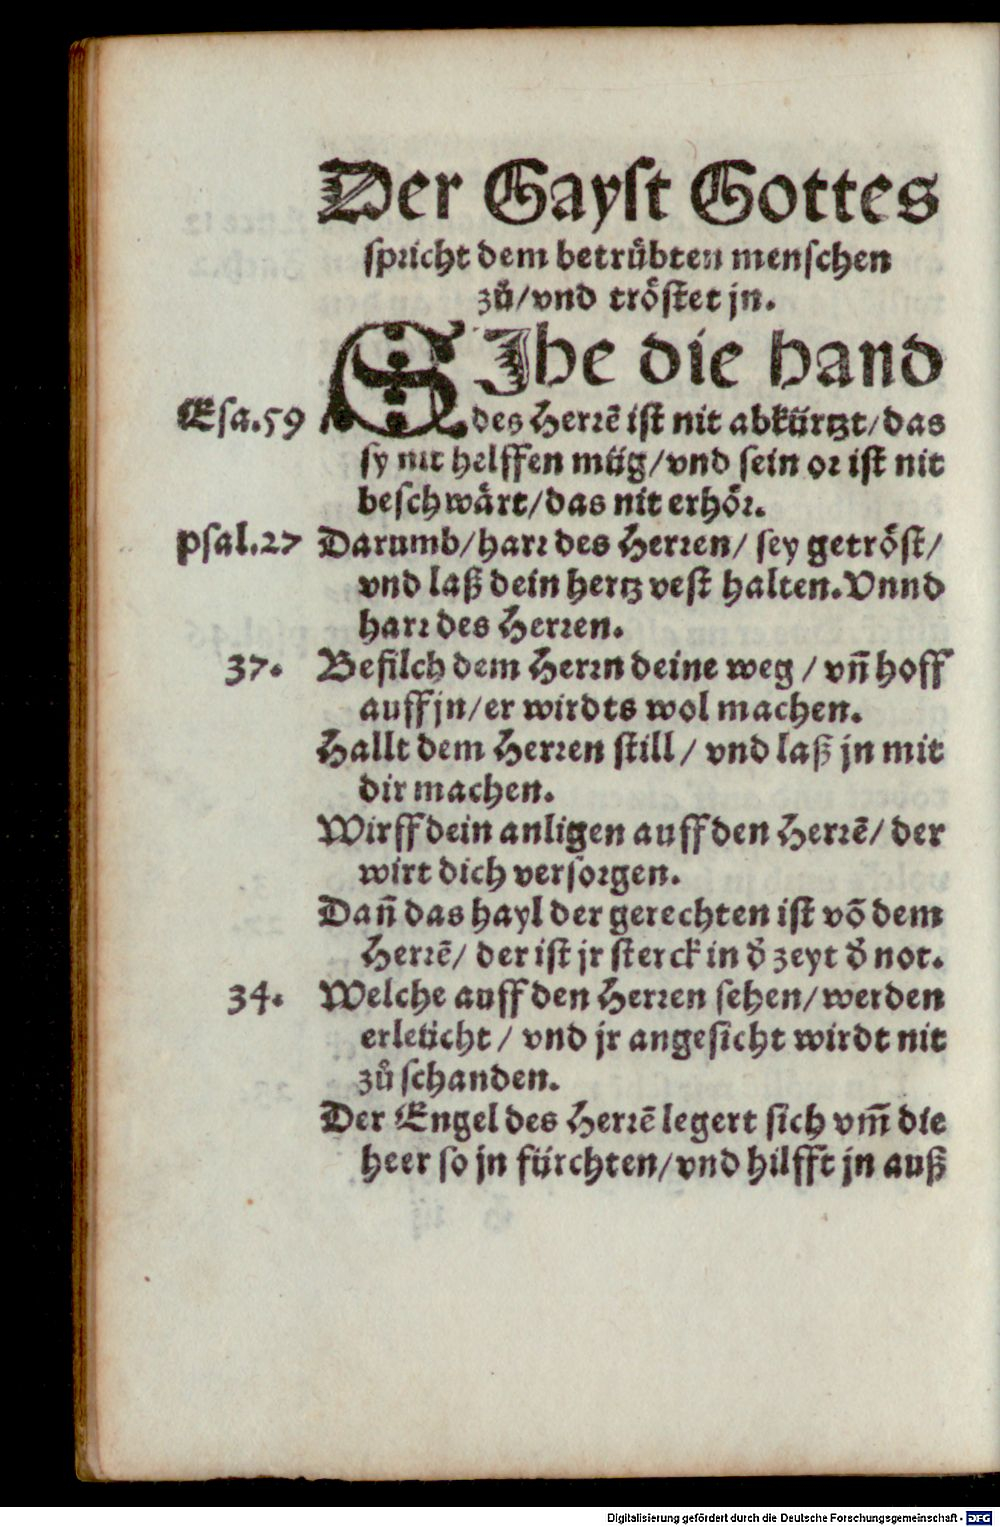 Der Gayst Gottes
spricht dem betrůbten menschen
zů/vnd tröstet jn.
SIhe die hand
Esa.59 des Herrē ist nit abkürtzt/das
sy nit helffen müg/vnd sein or ist nit
beschwärt/das nit erhör.
psal.27 Darumb/harr des Herren/ sey getröst/
vnd laß dein hertz vest halten.Vnnd
harr des Herren.
37. Befilch dem Herrn deine weg / vñ hoff
auff jn/er wirdts wol machen.
Hallt dem Herren still/ vnd laß jn mit
dir machen.
Wirff dein anligen auff den Herrē/ der
wirt dich versorgen.
Dañ das hayl der gerechten ist võ dem
Herrē/ der ist jr sterck in d̄ zeyt d̄ not.
34. Welche auff den Herren sehen/werden
erleücht / vnd jr angesicht wirdt nit
zů schanden.
Der Engel des Herrē legert sich vm̄ die
heer so jn fürchten/vnd hilfft jn auß
Digitalisierung gefördert durch die Deutsche Forschungsgemeinschaft - DFG